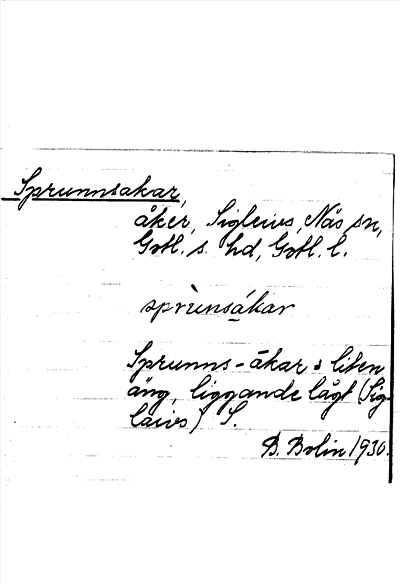 Sprunnsakar,
åker, Sigleius, Näs sn,
Gotl. s. hd, Gotl. l.
sprùnsákar
Sprunns-åkar = liten
äng, liggande lågt (Sig-
laivs) S.
B. Bolin 1930.